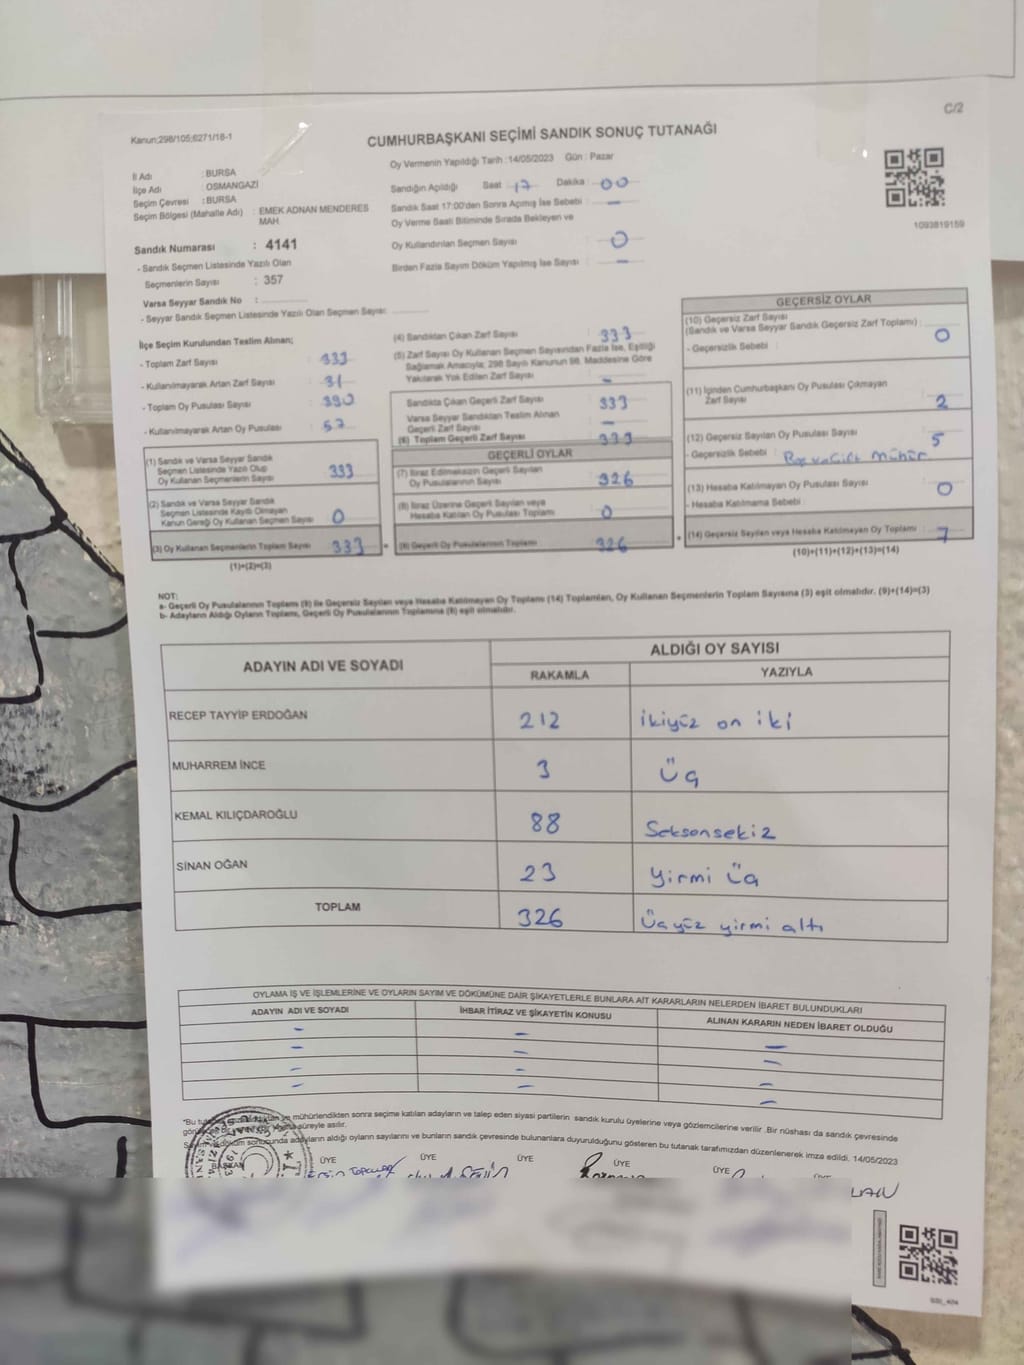 C/2
Kanun;298/105;6271/18-1
CUMHURBAŞKANI SEÇİMİ SANDIK SONUÇ TUTANAĞI
Oy Vermenin Yapıldığı Tarih :14/05/2023 Gün : Pazar
İl Adı : BURSA
İlçe Adı : OSMANGAZİ
Seçim Çevresi : BURSA
Seçim Bölgesi (Mahalle Adı) : EMEK ADNAN MENDERES MAH.
Sandık Numarası : 4141
- Sandık Seçmen Listesinde Yazılı Olan
Seçmenlerin Sayısı : 357
Varsa Seyyar Sandık No :
- Seyyar Sandık Seçmen Listesinde Yazılı Olan Seçmen Sayısı:
Sandığın Açıldığı Saat 17 Dakika : 00
Sandık Saat 17:00'den Sonra Açımış İse Sebebi : -
Oy Verme Saati Bitiminde Sırada Bekleyen ve
Oy Kullandırılan Seçmen Sayısı : 0
Birden Fazla Sayım Döküm Yapılmış İse Sayısı : -
1093819159
İlçe Seçim Kurulundan Teslim Alınan;
- Toplam Zarf Sayısı :
- Kullanılmayarak Artan Zarf Sayısı : 31
- Toplam Oy Pusulası Sayısı : 390
- Kullanılmayarak Artan Oy Pusulası : 57
(1) Sandık ve Varsa Seyyar Sandık
Seçmen Listesinde Yazılı Olup
Oy Kullanan Seçmenlerin Sayısı 333
(2) Sandık ve Varsa Seyyar Sandık
Seçmen Listesinde Kayıtlı Olmayan
Kanun Gereği Oy Kullanan Seçmen Sayısı 0
(3) Oy Kullanan Seçmenlerin Toplam Sayısı 333
(1)+(2)=(3)
(4) Sandıktan Çıkan Zarf Sayısı : 333
(5) Zarf Sayısı Oy Kullanan Seçmen Sayısından Fazla İse, Eşitliği
Sağlamak Amacıyla; 298 Sayılı Kanunun 98. Maddesine Göre
Yakılarak Yok Edilen Zarf Sayısı : -
Sandıkta Çıkan Geçerli Zarf Sayısı : 333
Varsa Seyyar Sandıktan Teslim Alınan
Geçerli Zarf Sayısı : -
(6) Toplam Geçerli Zarf Sayısı : 333
GEÇERLİ OYLAR
(7) İtiraz Edilmeksizin Geçerli Sayılan
Oy Pusulalarının Sayısı : 326
(8) İtiraz Üzerine Geçerli Sayılan veya
Hesaba Katılan Oy Pusulası Toplamı : 0
Geçerli Oy Pusulalarının Toplamı : 326
GEÇERSİZ OYLAR
(10) Geçersiz Zarf Sayısı
(Sandık ve Varsa Seyyar Sandık Geçersiz Zarf Toplamı) : 0
- Geçersizlik Sebebi :
(11) İçinden Cumhurbaşkanı Oy Pusulası Çıkmayan
Zarf Sayısı : 2
(12) Geçersiz Sayılan Oy Pusulası Sayısı : 5
- Geçersizlik Sebebi : mühür
(13) Hesaba Katılmayan Oy Pusulası Sayısı : 0
- Hesaba Katılmama Sebebi :
(14) Geçersiz Sayılan veya Hesaba Katılmayan Oy Toplamı : 7
(10)+(11)+(12)+(13)=(14)
NOT:
a- Geçerli Oy Pusulalarının Toplamı (9) ile Geçersiz Sayılan veya Hesaba Katılmayan Oy Toplamı (14) Toplamları, Oy Kullanan Seçmenlerin Toplam Sayısına (3) eşit olmalıdır. (9)+(14)=(3)
b- Adayların Aldığı Oyların Toplamı, Geçerli Oy Pusulalarının Toplamına (9) eşit olmalıdır.
ADAYIN ADI VE SOYADI ALDIĞI OY SAYISI
RAKAMLA YAZIYLA
RECEP TAYYİP ERDOĞAN 212 ikiyüz on iki
MUHARREM İNCE 3 üç
KEMAL KILIÇDAROĞLU 88 Seksonsekiz
SİNAN OĞAN 23 yirmi üç
TOPLAM 326 üçyüz yirmi altı
OYLAMA İŞ VE İŞLEMLERİNE VE OYLARIN SAYIM VE DÖKÜMÜNE DAİR ŞİKAYETLERLE BUNLARA AİT KARARLARIN NELERDEN İBARET BULUNDUKLARI
ADAYIN ADI VE SOYADI İHBAR İTİRAZ VE ŞİKAYETİN KONUSU ALINAN KARARIN NEDEN İBARET OLDUĞU
- - -
- - -
- - -
- - -
*Bu mühürlendikten sonra seçime katılan adayların ve talep eden siyasi partilerin sandık kurulu üyelerine veya gözlemcilerine verilir .Bir nüshası da sandık çevresinde
süreyle asılır.
sonucunda adayların aldığı oyların sayılarını ve bunların sandık çevresinde bulunanlara duyurulduğunu gösteren bu tutanak tarafımızdan düzenlenerek imza edildi. 14/05/2023
BAŞKAN ÜYE ÜYE ÜYE ÜYE ÜYE